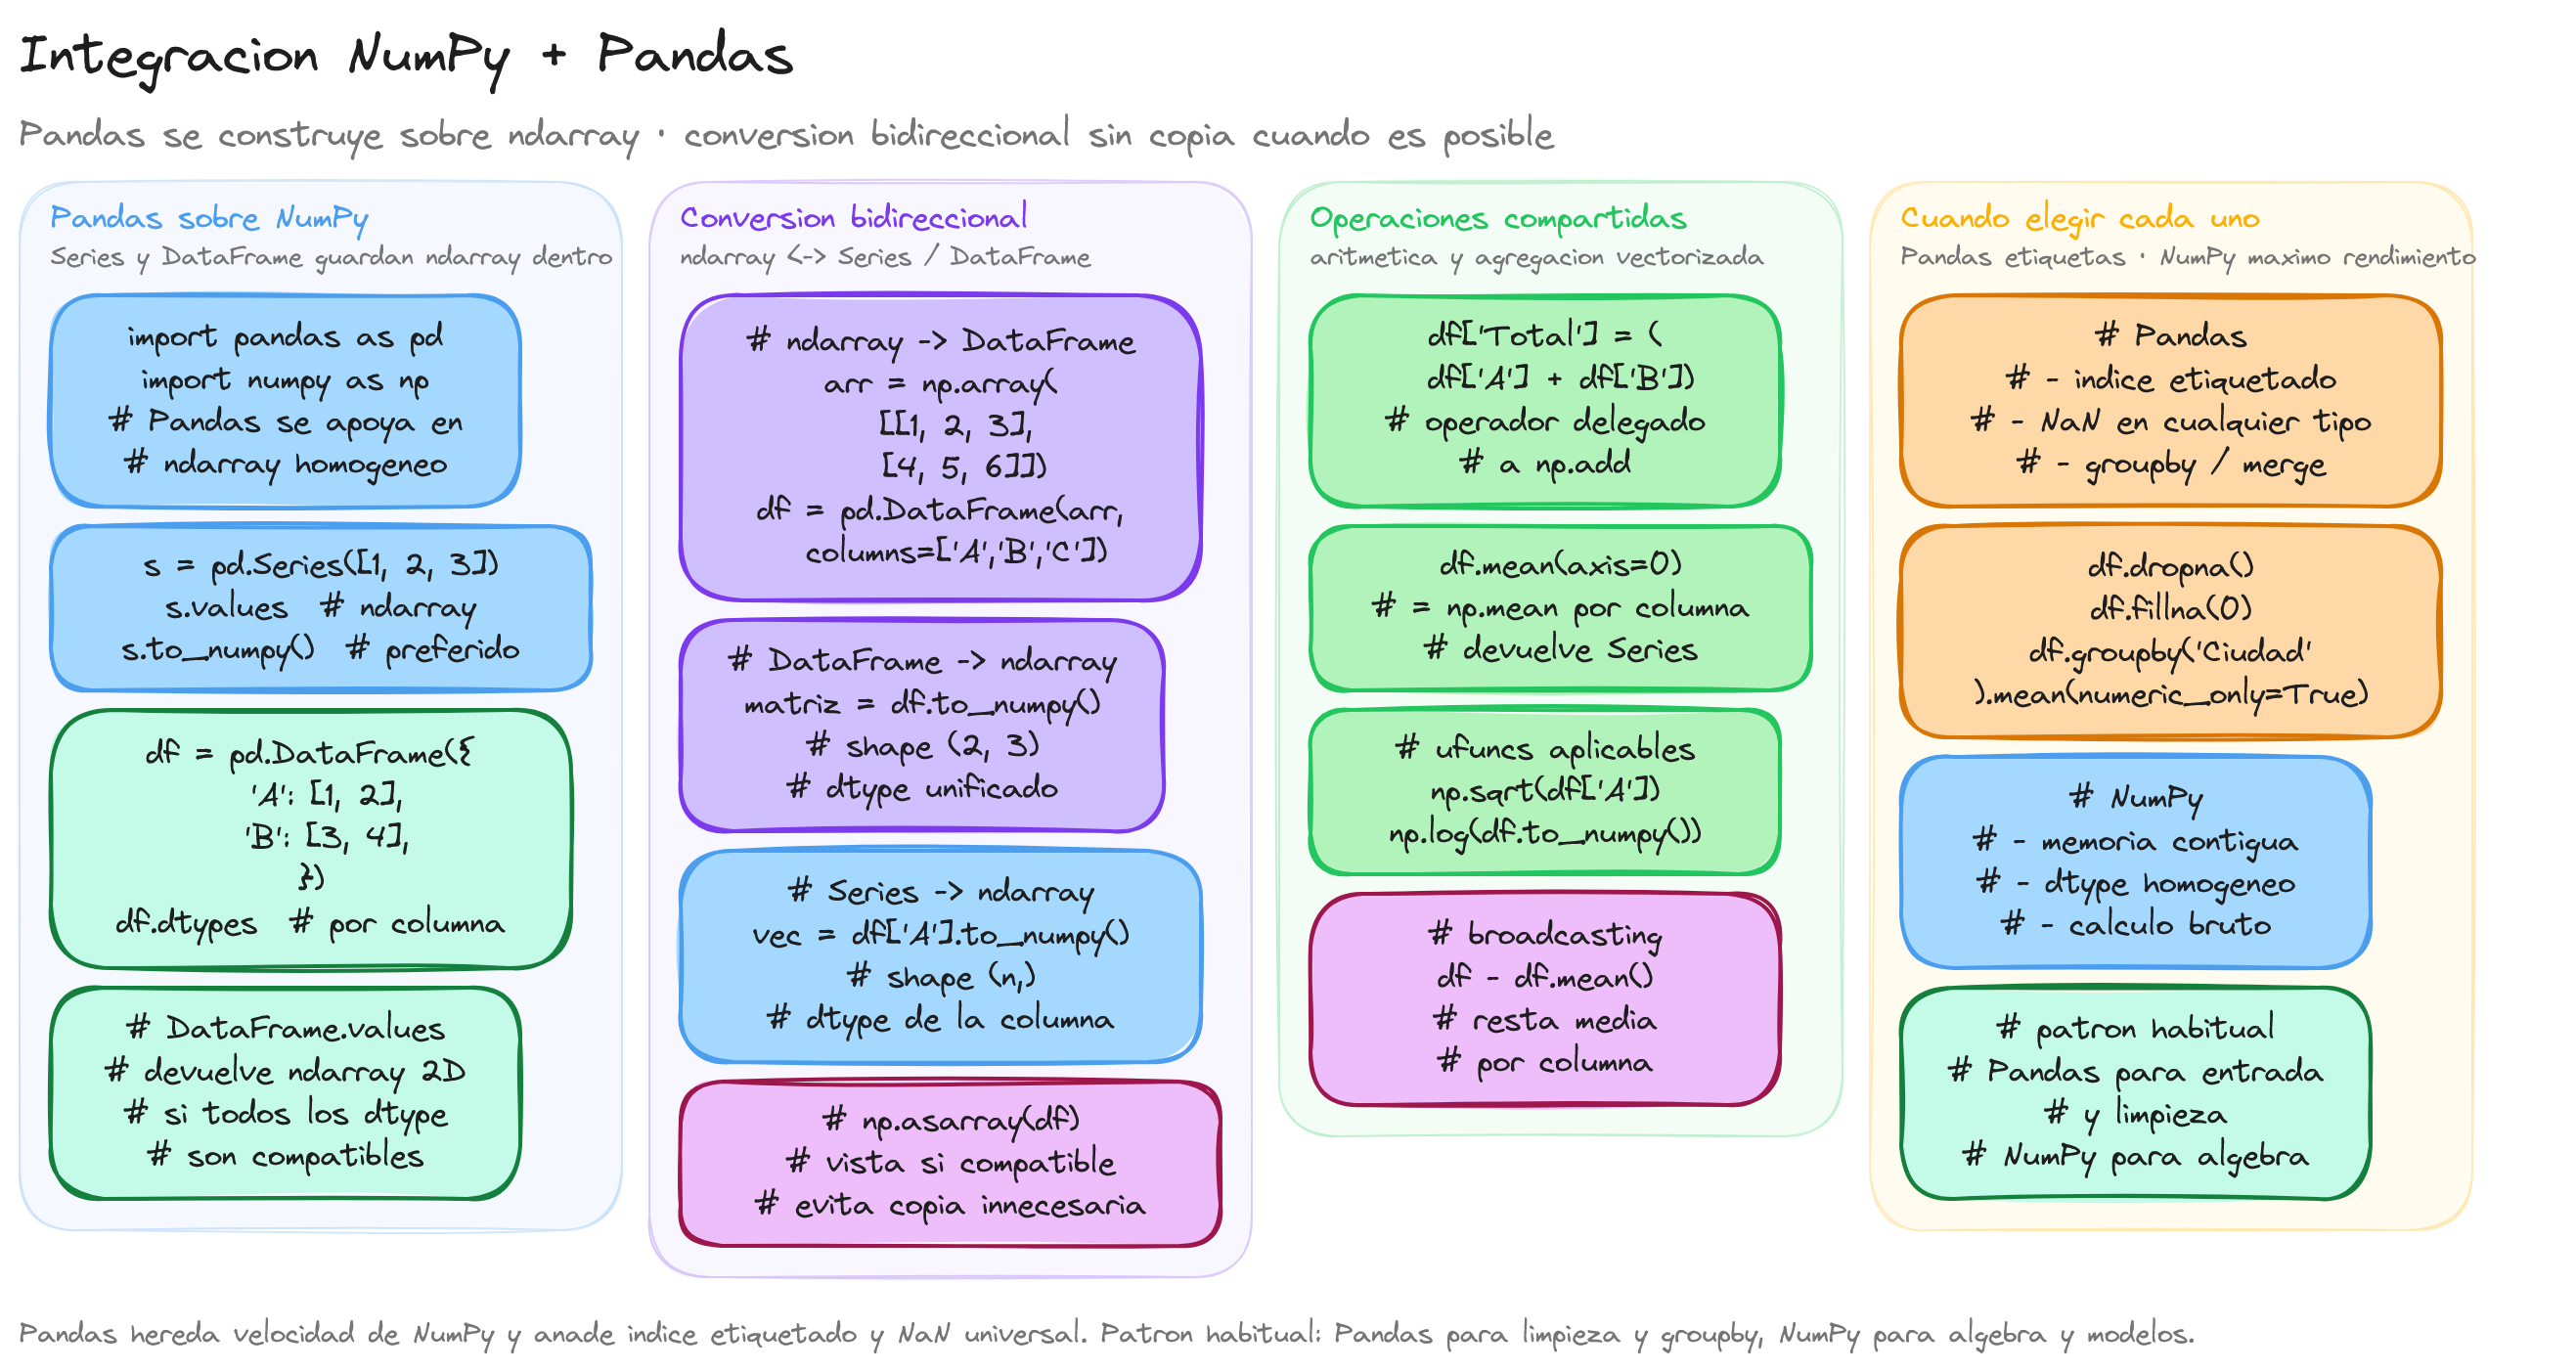 Integracion NumPy + Pandas
Pandas se construye sobre ndarray · conversion bidireccional sin copia cuando es posible
Pandas sobre NumPy
Series y DataFrame guardan ndarray dentro
import pandas as pd
import numpy as np
# Pandas se apoya en
# ndarray homogeneo
s = pd.Series([1, 2, 3])
s.values  # ndarray
s.to_numpy()  # preferido
df = pd.DataFrame({
'A': [1, 2],
'B': [3, 4],
})
df.dtypes  # por columna
# DataFrame.values
# devuelve ndarray 2D
# si todos los dtype
# son compatibles
Conversion bidireccional
ndarray <-> Series / DataFrame
# ndarray -> DataFrame
arr = np.array(
[[1, 2, 3],
[4, 5, 6]])
df = pd.DataFrame(arr,
columns=['A','B','C'])
# DataFrame -> ndarray
matriz = df.to_numpy()
# shape (2, 3)
# dtype unificado
# Series -> ndarray
vec = df['A'].to_numpy()
# shape (n,)
# dtype de la columna
# np.asarray(df)
# vista si compatible
# evita copia innecesaria
Operaciones compartidas
aritmetica y agregacion vectorizada
df['Total'] = (
df['A'] + df['B'])
# operador delegado
# a np.add
df.mean(axis=0)
# = np.mean por columna
# devuelve Series
# ufuncs aplicables
np.sqrt(df['A'])
np.log(df.to_numpy())
# broadcasting
df - df.mean()
# resta media
# por columna
Cuando elegir cada uno
Pandas etiquetas · NumPy maximo rendimiento
# Pandas
# - indice etiquetado
# - NaN en cualquier tipo
# - groupby / merge
df.dropna()
df.fillna(0)
df.groupby('Ciudad'
).mean(numeric_only=True)
# NumPy
# - memoria contigua
# - dtype homogeneo
# - calculo bruto
# patron habitual
# Pandas para entrada
# y limpieza
# NumPy para algebra
Pandas hereda velocidad de NumPy y anade indice etiquetado y NaN universal. Patron habitual: Pandas para limpieza y groupby, NumPy para algebra y modelos.